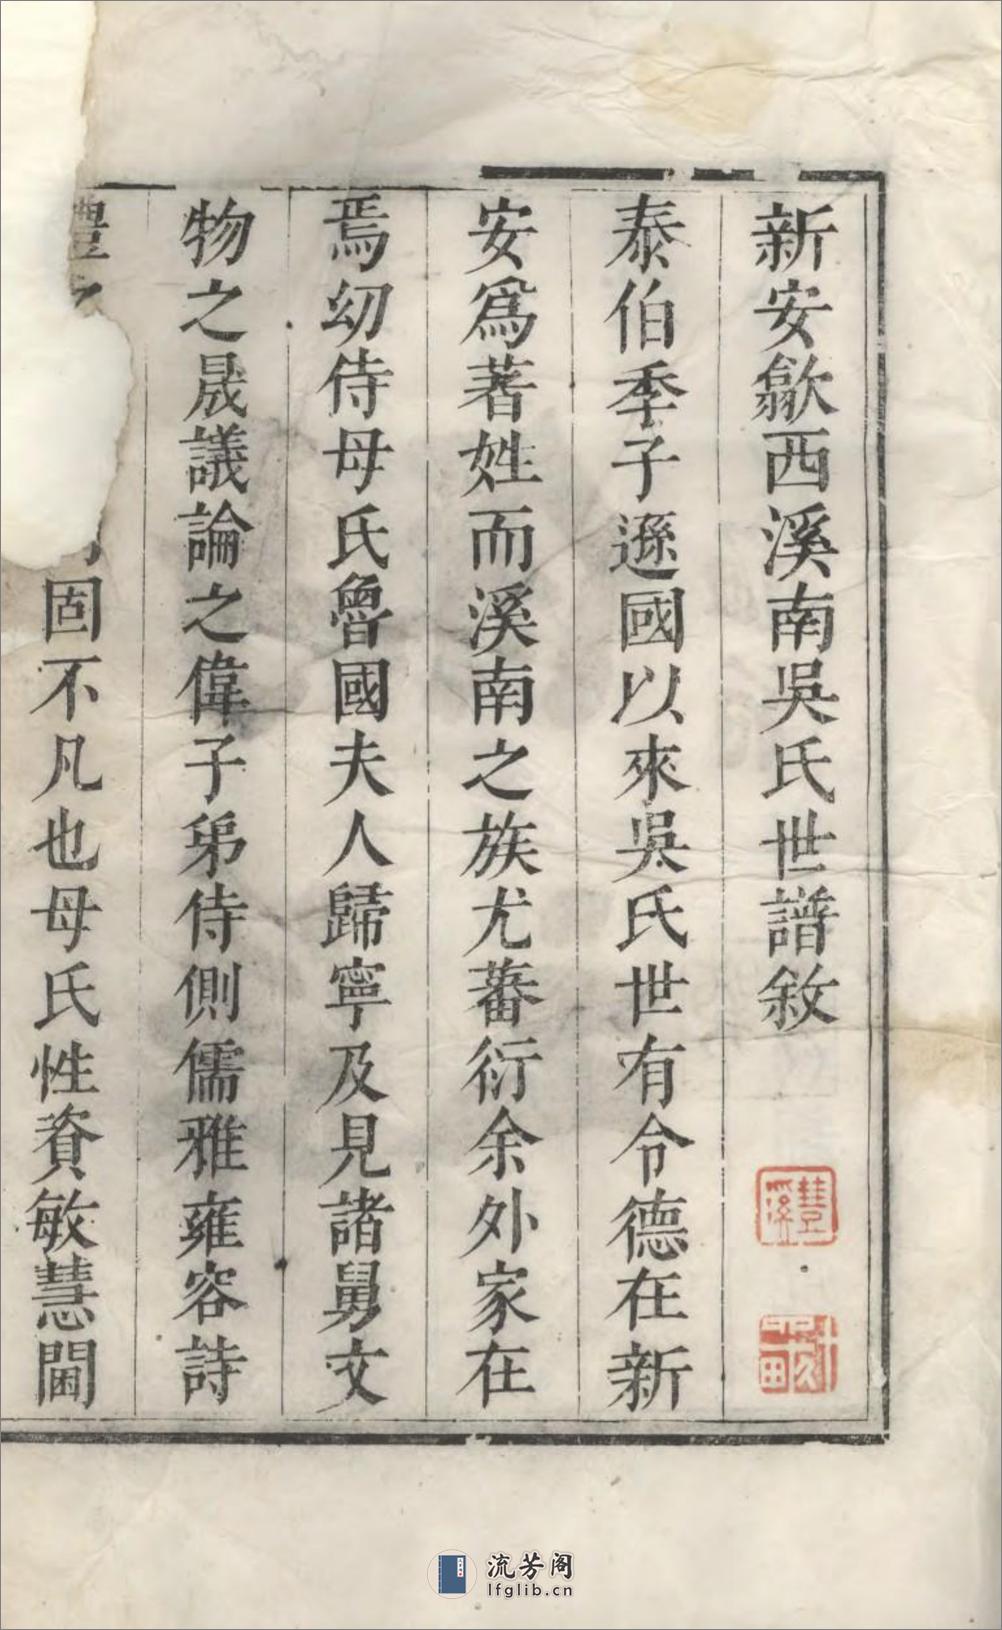 新安歙西溪南吳氏世譜敘
泰伯季子遜國以來吳氏世有令德在新
安爲著姓而溪南之族尤蕃衍余外家在
焉幼侍母氏魯國夫人歸寧及見諸舅文
物之晟議論之偉子弟侍側儒雅雍容詩
禮之固不凡也母氏性資敏慧閫
豐溪
流芳阁
lfglib.cn